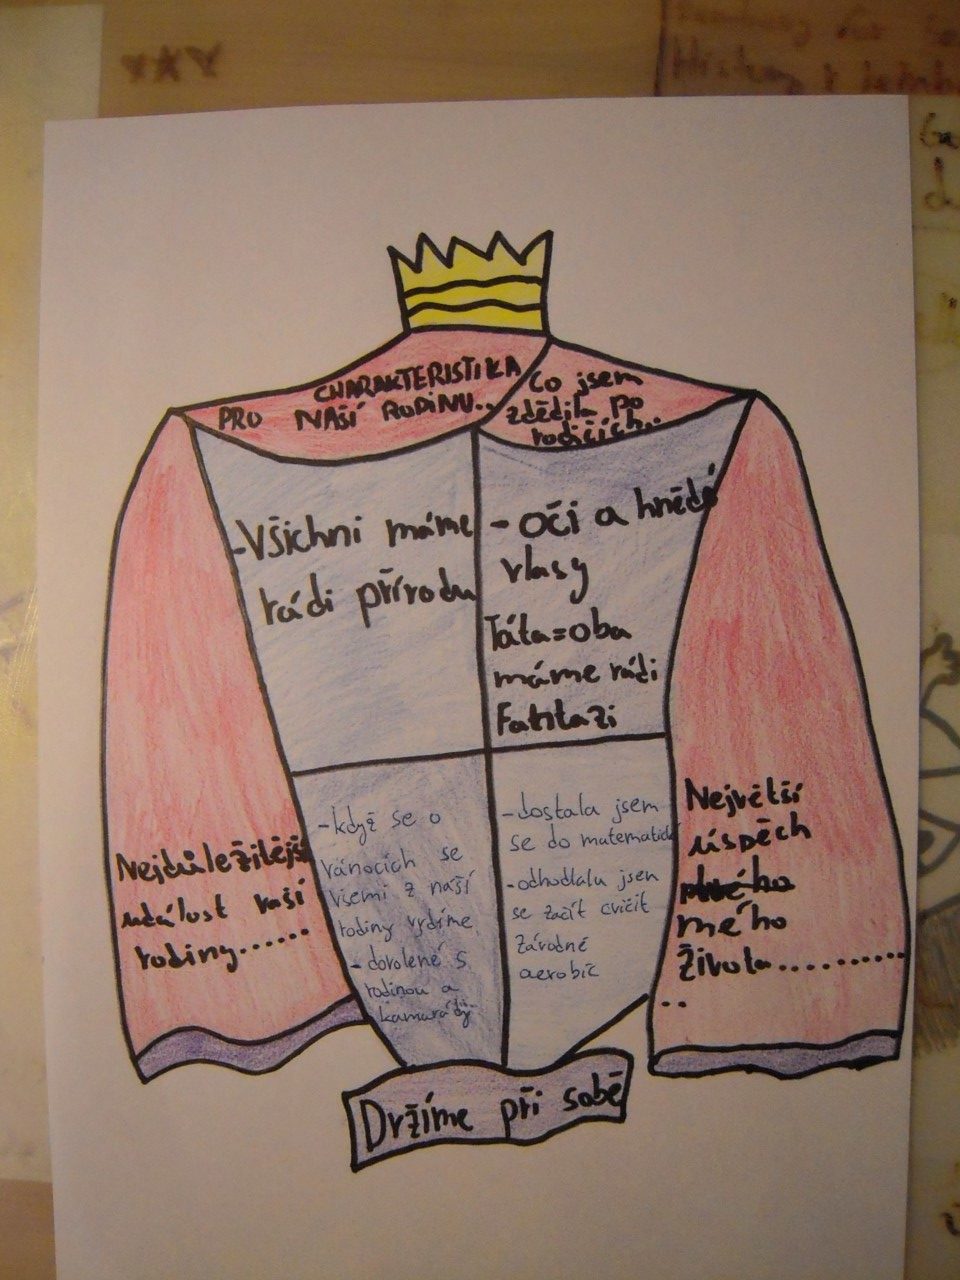 CHARAKTERISTIKA
PRO NAŠÍ RODINU..
Co jsem
zdědila po
rodičích..
-Všichni máme
rádi přírodu
- oči a hnědé
vlasy
Táta=oba
máme rádi
Fantazi
Nejdůležitějš
událost naší
rodiny......
-když se o
vánocích se
všemi z naší
rodiny vydíme
- dovolené s
rodinou a
kamarády
-dostala jsem
se do matematické
-odhodlala jsem
se začít cvičit
závodně
aerobic
Největší
úspěch
mého
života..........
..
Držíme při sobě